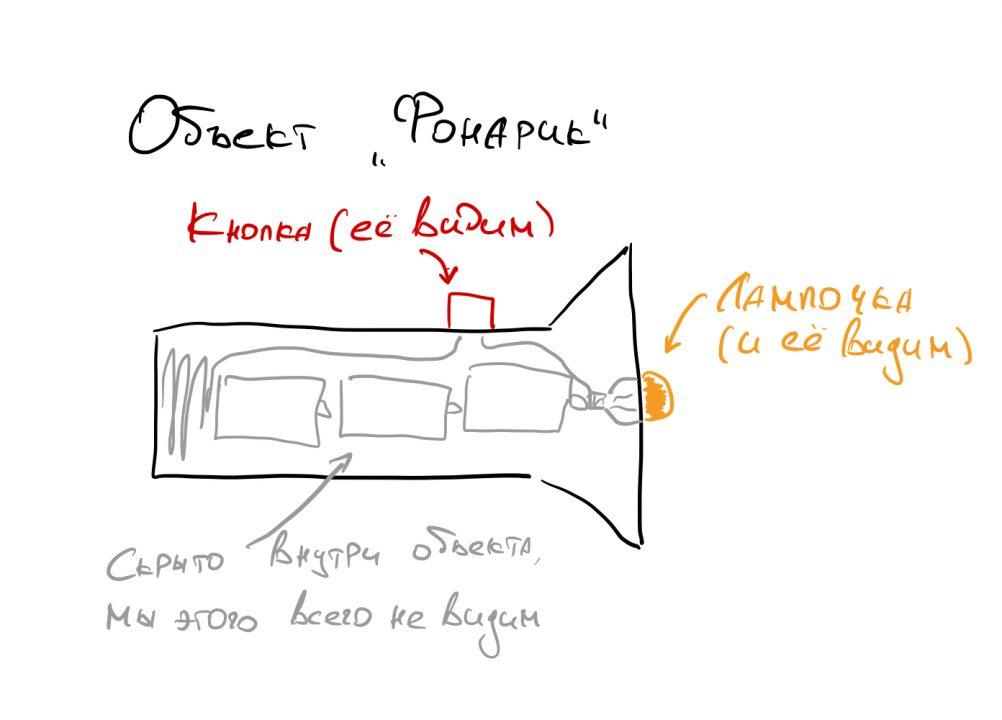 Объект „Фонарик“
Кнопка (её видим)
Лампочка
(и её видим)
Скрыто внутри объекта,
мы этого всего не видим